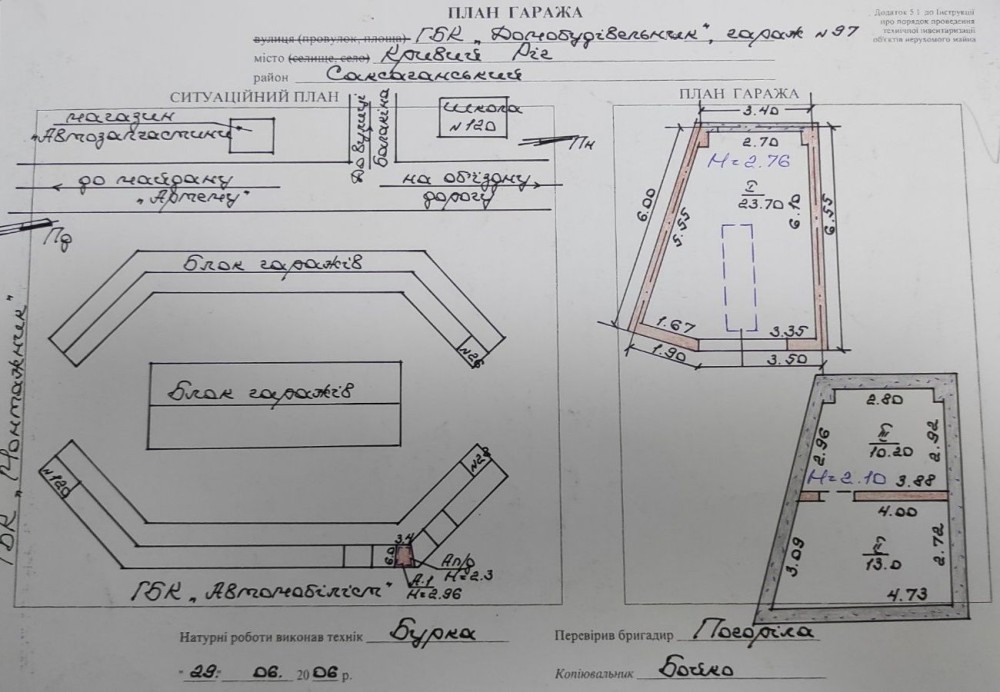 ПЛАН ГАРАЖА
Додаток 5.1 до Інструкції
про порядок проведення
технічної інвентаризації
об'єктів нерухомого майна
вулиця (провулок, площа) ГБК „Домобудівельник", гараж №97
місто (селище, село) Кривий Ріг
район Саксаганський
СИТУАЦІЙНИЙ ПЛАН
магазин
„Автозапчастини"
До вулиці
школа
№120
Пн
до майдану
„Артему"
на об'їздну
дорогу
Пд
Блок гаражів
№26
Блок гаражів
№120
№28
3.4
6.0
Ап/д
Н=2.3
А-1
Н=2.96
ГБК „Автомобіліст"
ГБК „Монтажник"
ПЛАН ГАРАЖА
3.40
2.70
Н=2.76
I
23.70
6.00
5.55
6.10
6.55
1.67
3.35
1.90
3.50
2.80
II
10.20
2.96
2.92
Н=2.10
3.88
4.00
III
13.0
3.09
2.72
4.73
Натурні роботи виконав технік Бурка
Перевірив бригадир Погоріла
"29" 06. 2006 р.
Копіювальник Бойко